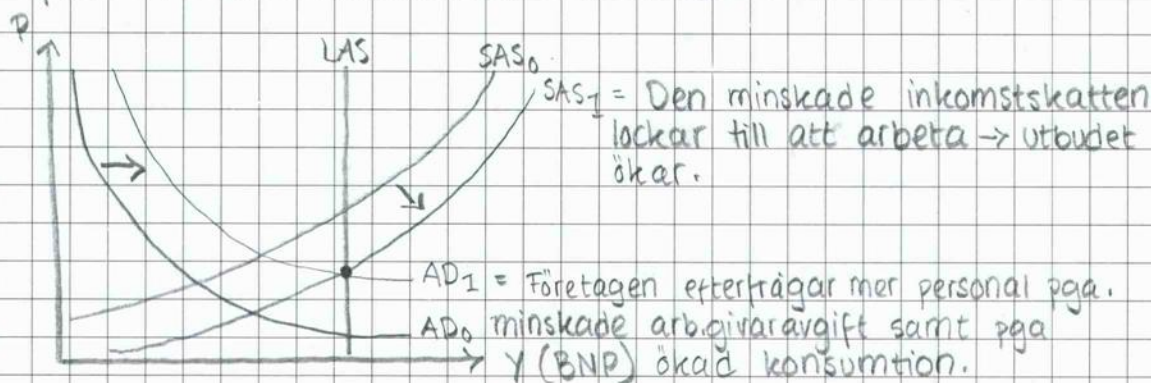 P
LAS
SAS₀
SAS₁ = Den minskade inkomstskatten
lockar till att arbeta → utbudet
ökar.
AD₁ = Företagen efterfrågar mer personal pga.
AD₀ minskade arb.givaravgift samt pga
Y (BNP) ökad konsumtion.